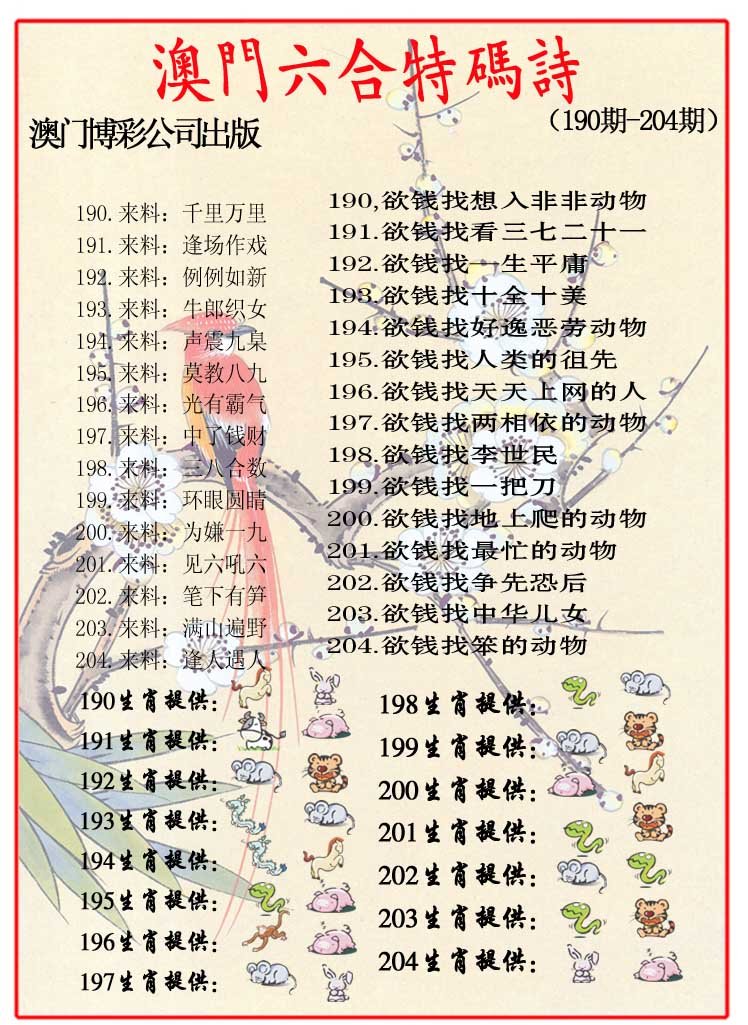 澳門六合特碼詩
澳门博彩公司出版
（190期-204期）
190.来料：千里万里
191.来料：逢场作戏
192.来料：例例如新
193.来料：牛郎织女
194.来料：声震九臬
195.来料：莫教八九
196.来料：光有霸气
197.来料：中了钱财
198.来料：三八合数
199.来料：环眼圆睛
200.来料：为嫌一九
201.来料：见六吼六
202.来料：笔下有笋
203.来料：满山遍野
204.来料：逢人遇人
190,欲钱找想入非非动物
191.欲钱找看三七二十一
192.欲钱找一生平庸
193.欲钱找十全十美
194.欲钱找好逸恶劳动物
195.欲钱找人类的徂先
196.欲钱找天天上网的人
197.欲钱找两相依的动物
198.欲钱找李世民
199.欲钱找一把刀
200.欲钱找地上爬的动物
201.欲钱找最忙的动物
202.欲钱找争先恐后
203.欲钱找中华儿女
204.欲钱找笨的动物
190生肖提供：
191生肖提供：
192生肖提供：
193生肖提供：
194生肖提供：
195生肖提供：
196生肖提供：
197生肖提供：
198生肖提供：
199生肖提供：
200生肖提供：
201生肖提供：
202生肖提供：
203生肖提供：
204生肖提供：